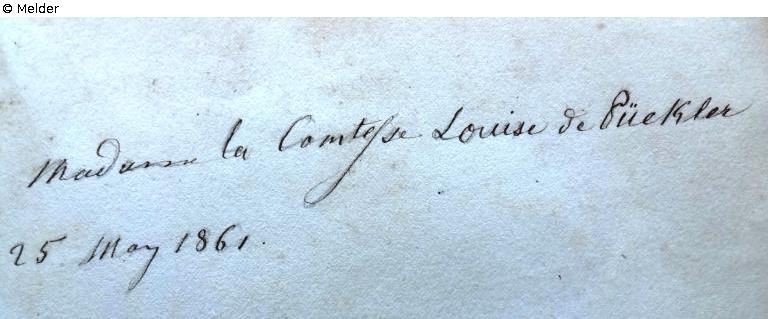 © Melder
Madame la Comtesse Louise de Pückler
25 May 1861.